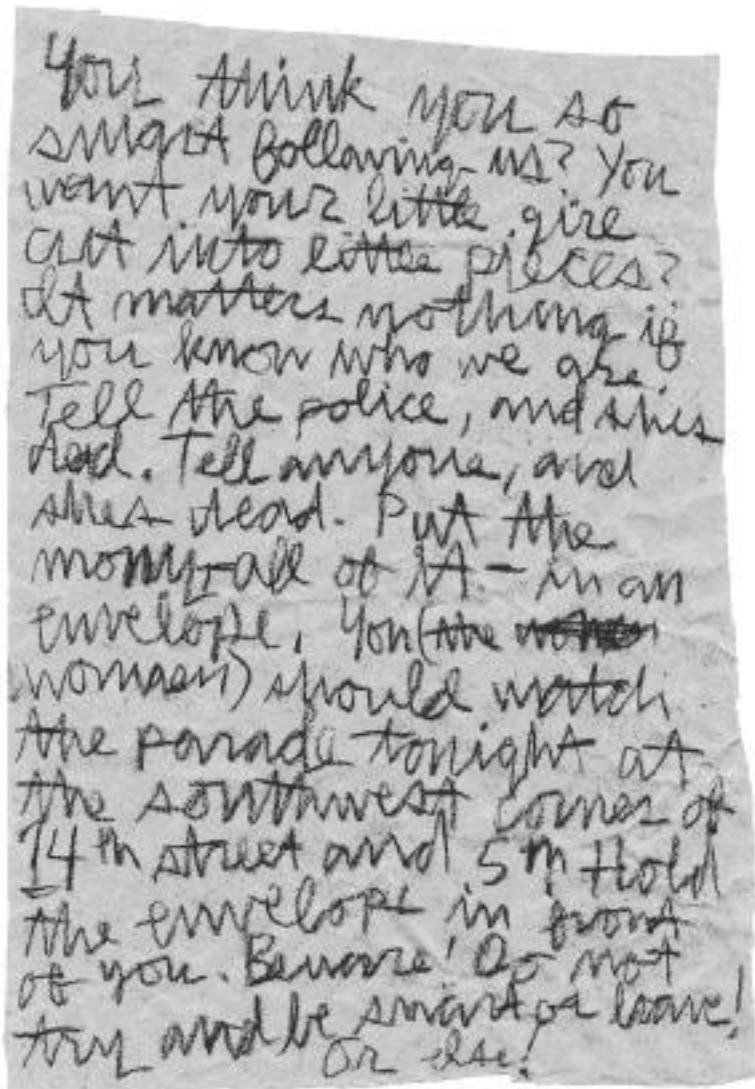 You think you so
smart following us? You
want your little girl
cut into little pieces?
It matters nothing if
you know who we are.
Tell the police, and shes
dead. Tell anyone, and
shes dead. Put the
mony–all of it.– in an
envelope. You (the
women) should watch
the parade tonight at
the southwest corner of
14th street and 5th Hold
the envelope in front
of you. Beware! Do not
try and be smart or brave!
Or else!